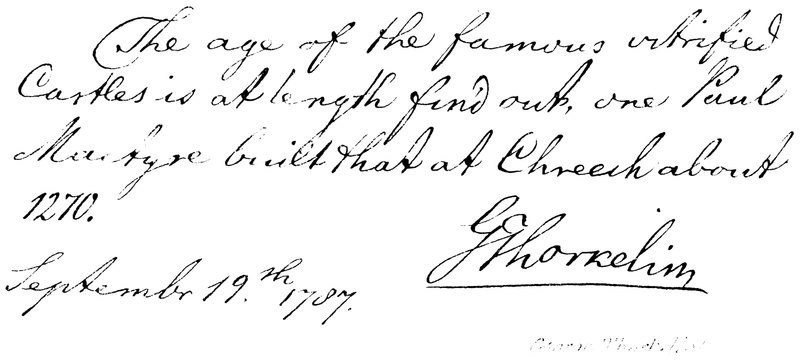 The age of the famous vitrified
Castles is at length find out, one Paul
Martyre built that at Chreesh about
1270.
GThorkelin
Septembr 19.th 1787.